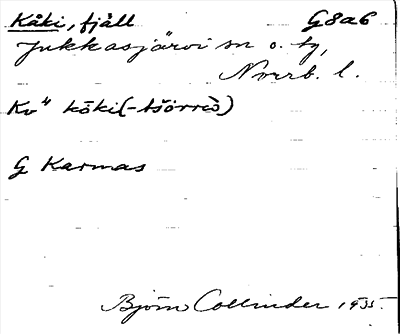 Kåki, fjäll G8a6
Jukkasjärvi sn o. tg,
Norrb. l.
Kv" kōki(-tšōrrò)
G Karmas
Björn Collinder 1935.